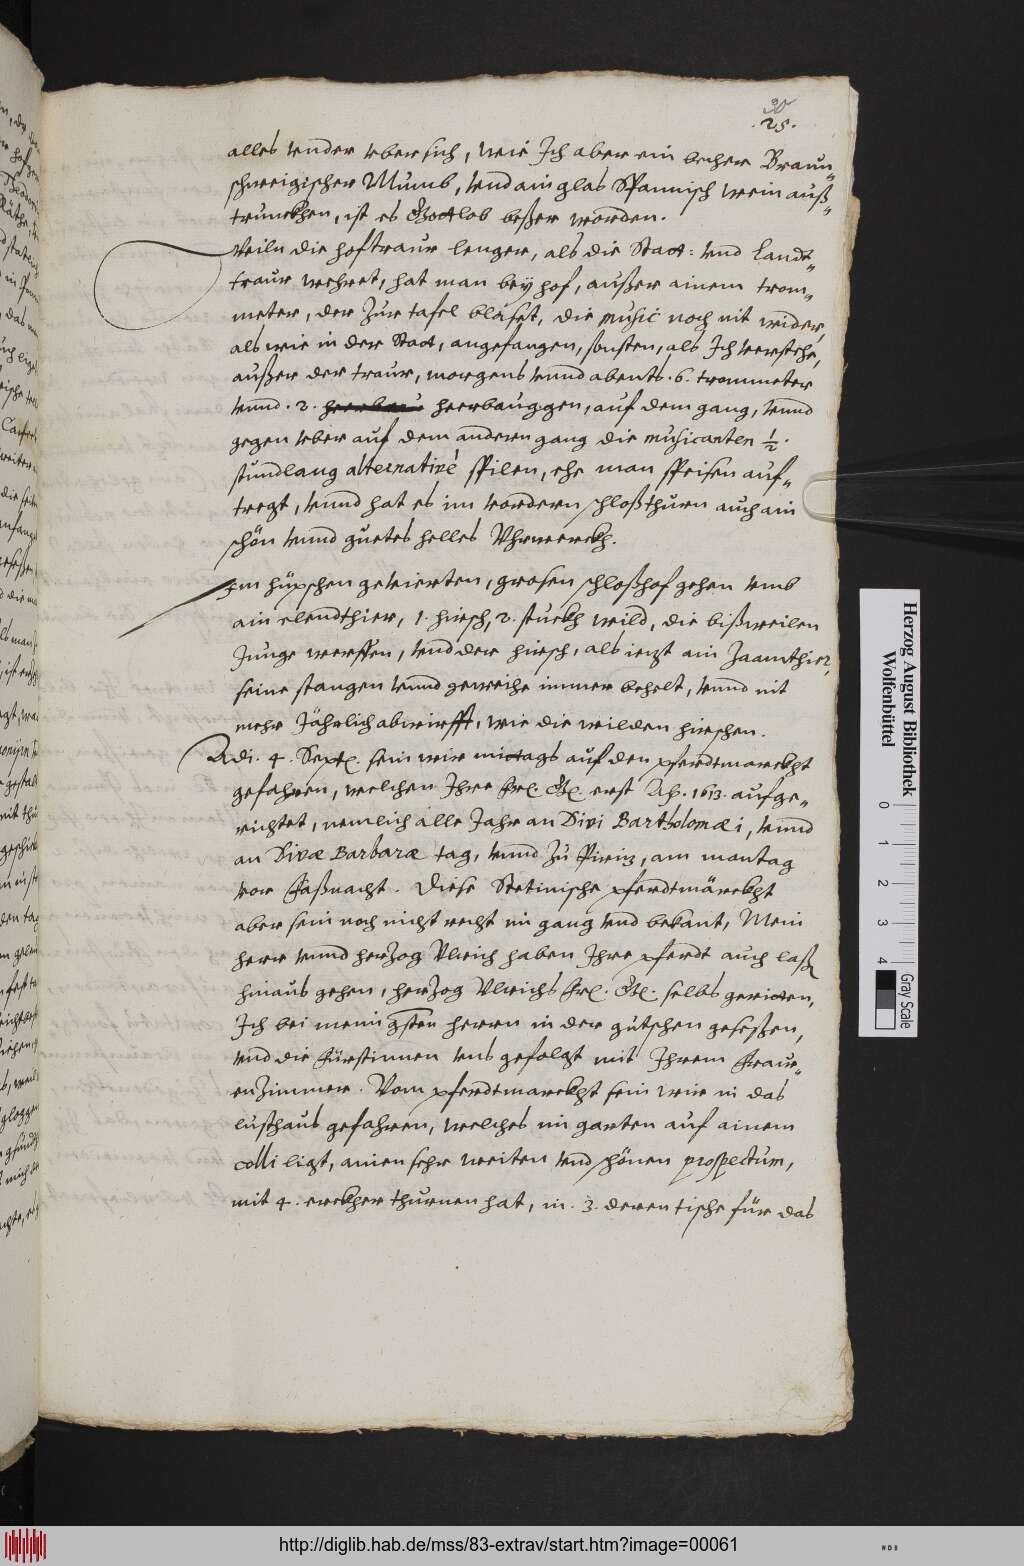 30
.25.
alles vnder vber sich, wie Ich aber ein becher Braun„
schweigischer Mumb, vnd ain glas Spannisch wein auß„
trunckhen, ist es Gottlob beßer worden.
Weiln die hoftraur lenger, als die Statt: vnd Landt„
traur wehret, hat man bey hof, außer ainem trom„
meter, der zur tafel bläset, die music noch nit wider,
als wie in der Statt, angefangen, sonsten, als Ich verstehe,
außer der traur, morgens vnnd abents .6. trommeter
vnnd .2. heerbauggen, auf dem gang, vnnd
gegen vber auf dem anderen gang die musicanten ½.
stundlang alternativè spilen, ehe man speisen auf„
tregt, vnnd hat es im vordern schloßthurn auch ain
schön vnnd guetes helles Vhrwerckh.
Im hüpschen gevierten, grosen schloßhof gehen vmb
ain elendthier, 1. hirsch, 2. stuckh wild, die bißweilen
Junge werffen, vnd der hirsch, als iezt ain zaamthier,
seine stangen vnnd geweihe immer behelt, vnnd nit
mehr Jährlich abwirfft, wie die wilden hirschen.
Adi. 4. Sept. sein wir mittags auf den pferdtmarckht
gefahren, welchen Ihre Frl. Gl. erst Aõ. 1613. aufge„
richtet, nemlich alle Jahr an Divi Bartholomæi, vnnd
an Divæ Barbaræ tag, vnnd zu Piriz, am montag
vor Faßnacht. Diese Stetinische pferdtmärckht
aber sein noch nicht recht im gang vnd bekant, Mein
herr vnnd herzog Vlrich haben Ihre pferdt auch laßen
hinaus gehen, herzog Vlrichs Frl. Gl. selbs geritten,
Ich bei meim gsten herrn in der gutschen geseßen,
vnd die Fürstinnen vns gefolgt mit Ihrem Fraw„
enzimmer. Vom pferdtmarckht sein wir in das
lusthaus gefahren, welches im garten auf ainem
colli ligt, ainen sehr weiten vnd schönen prospectum,
mit 4. erckher thurnen hat, in .3. deren tische für das
Herzog August Bibliothek
Wolfenbüttel
0 1 2 3 4
Gray Scale
http://diglib.hab.de/mss/83-extrav/start.htm?image=00061
WDB